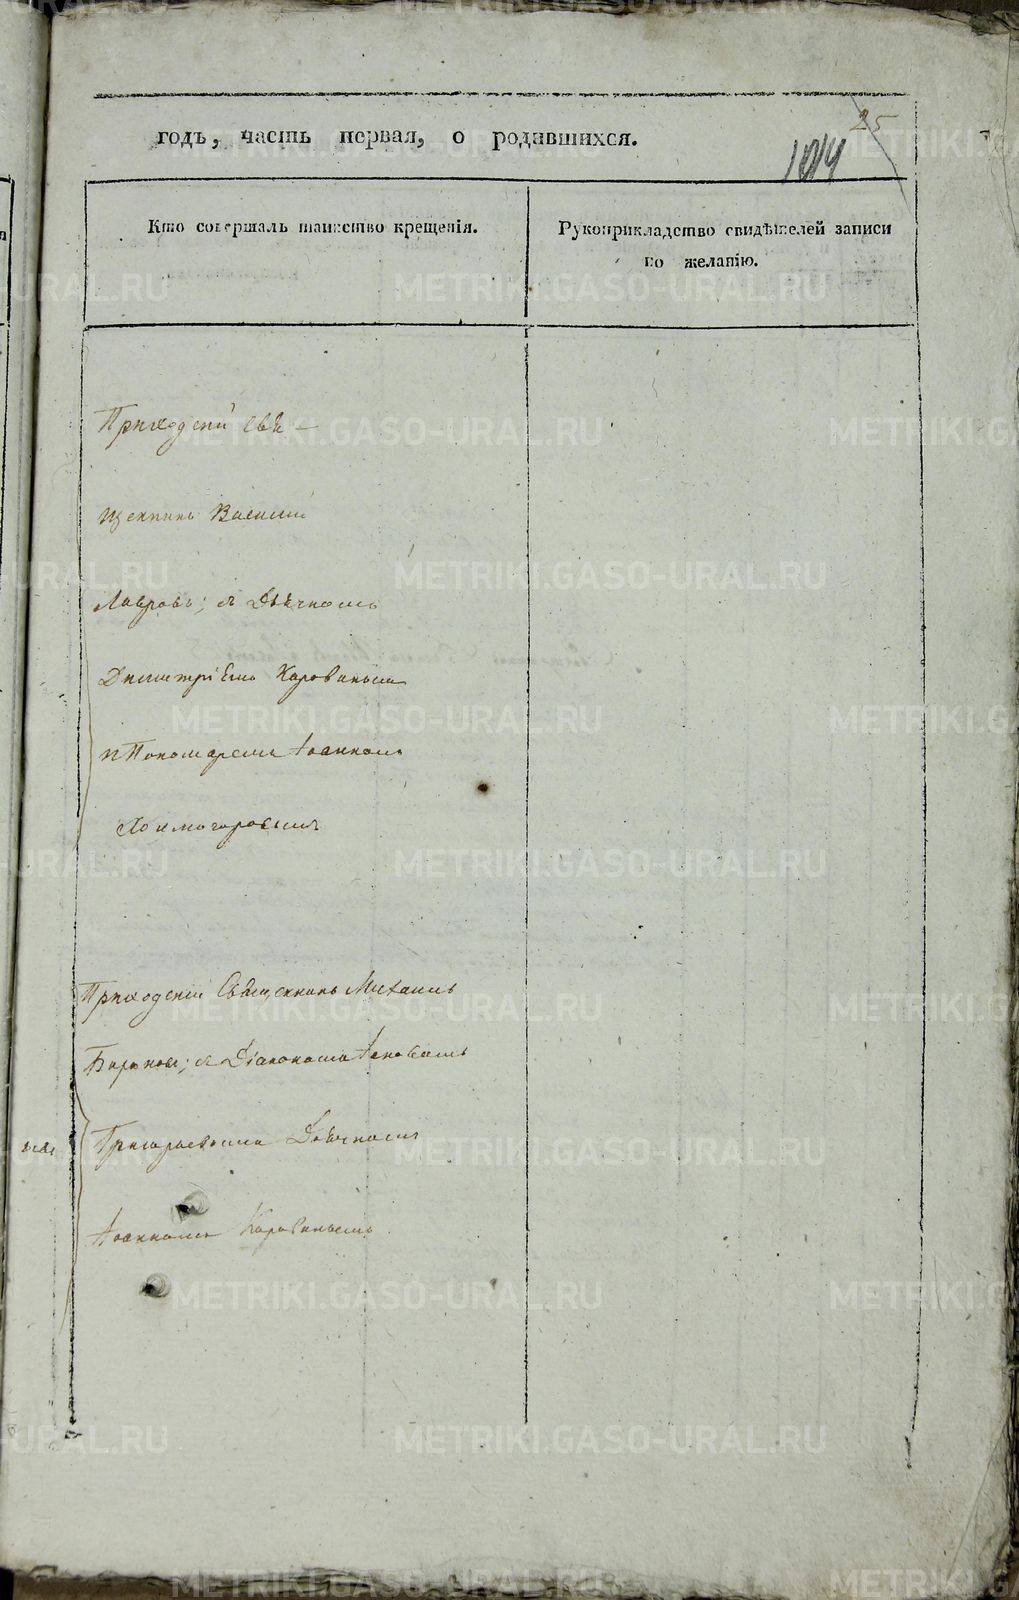 25
годъ, часть первая, о родившихся.
1014
Кто совершалъ таинство крещенія.
Рукоприкладство свидѣтелей записи
по желанію.
Приходскій Свя-
щенникъ Василій
Лавровъ; съ Дьячкомъ
Димитріемъ Коровинымъ
и Пономаремъ Іоанномъ
Холмогоровымъ
Приходскій Священникъ Михаилъ
съ Діакономъ Іаковомъ
Григорьевымъ Дьячкомъ
Іоанномъ Коровинымъ
METRIKI.GASO-URAL.RU